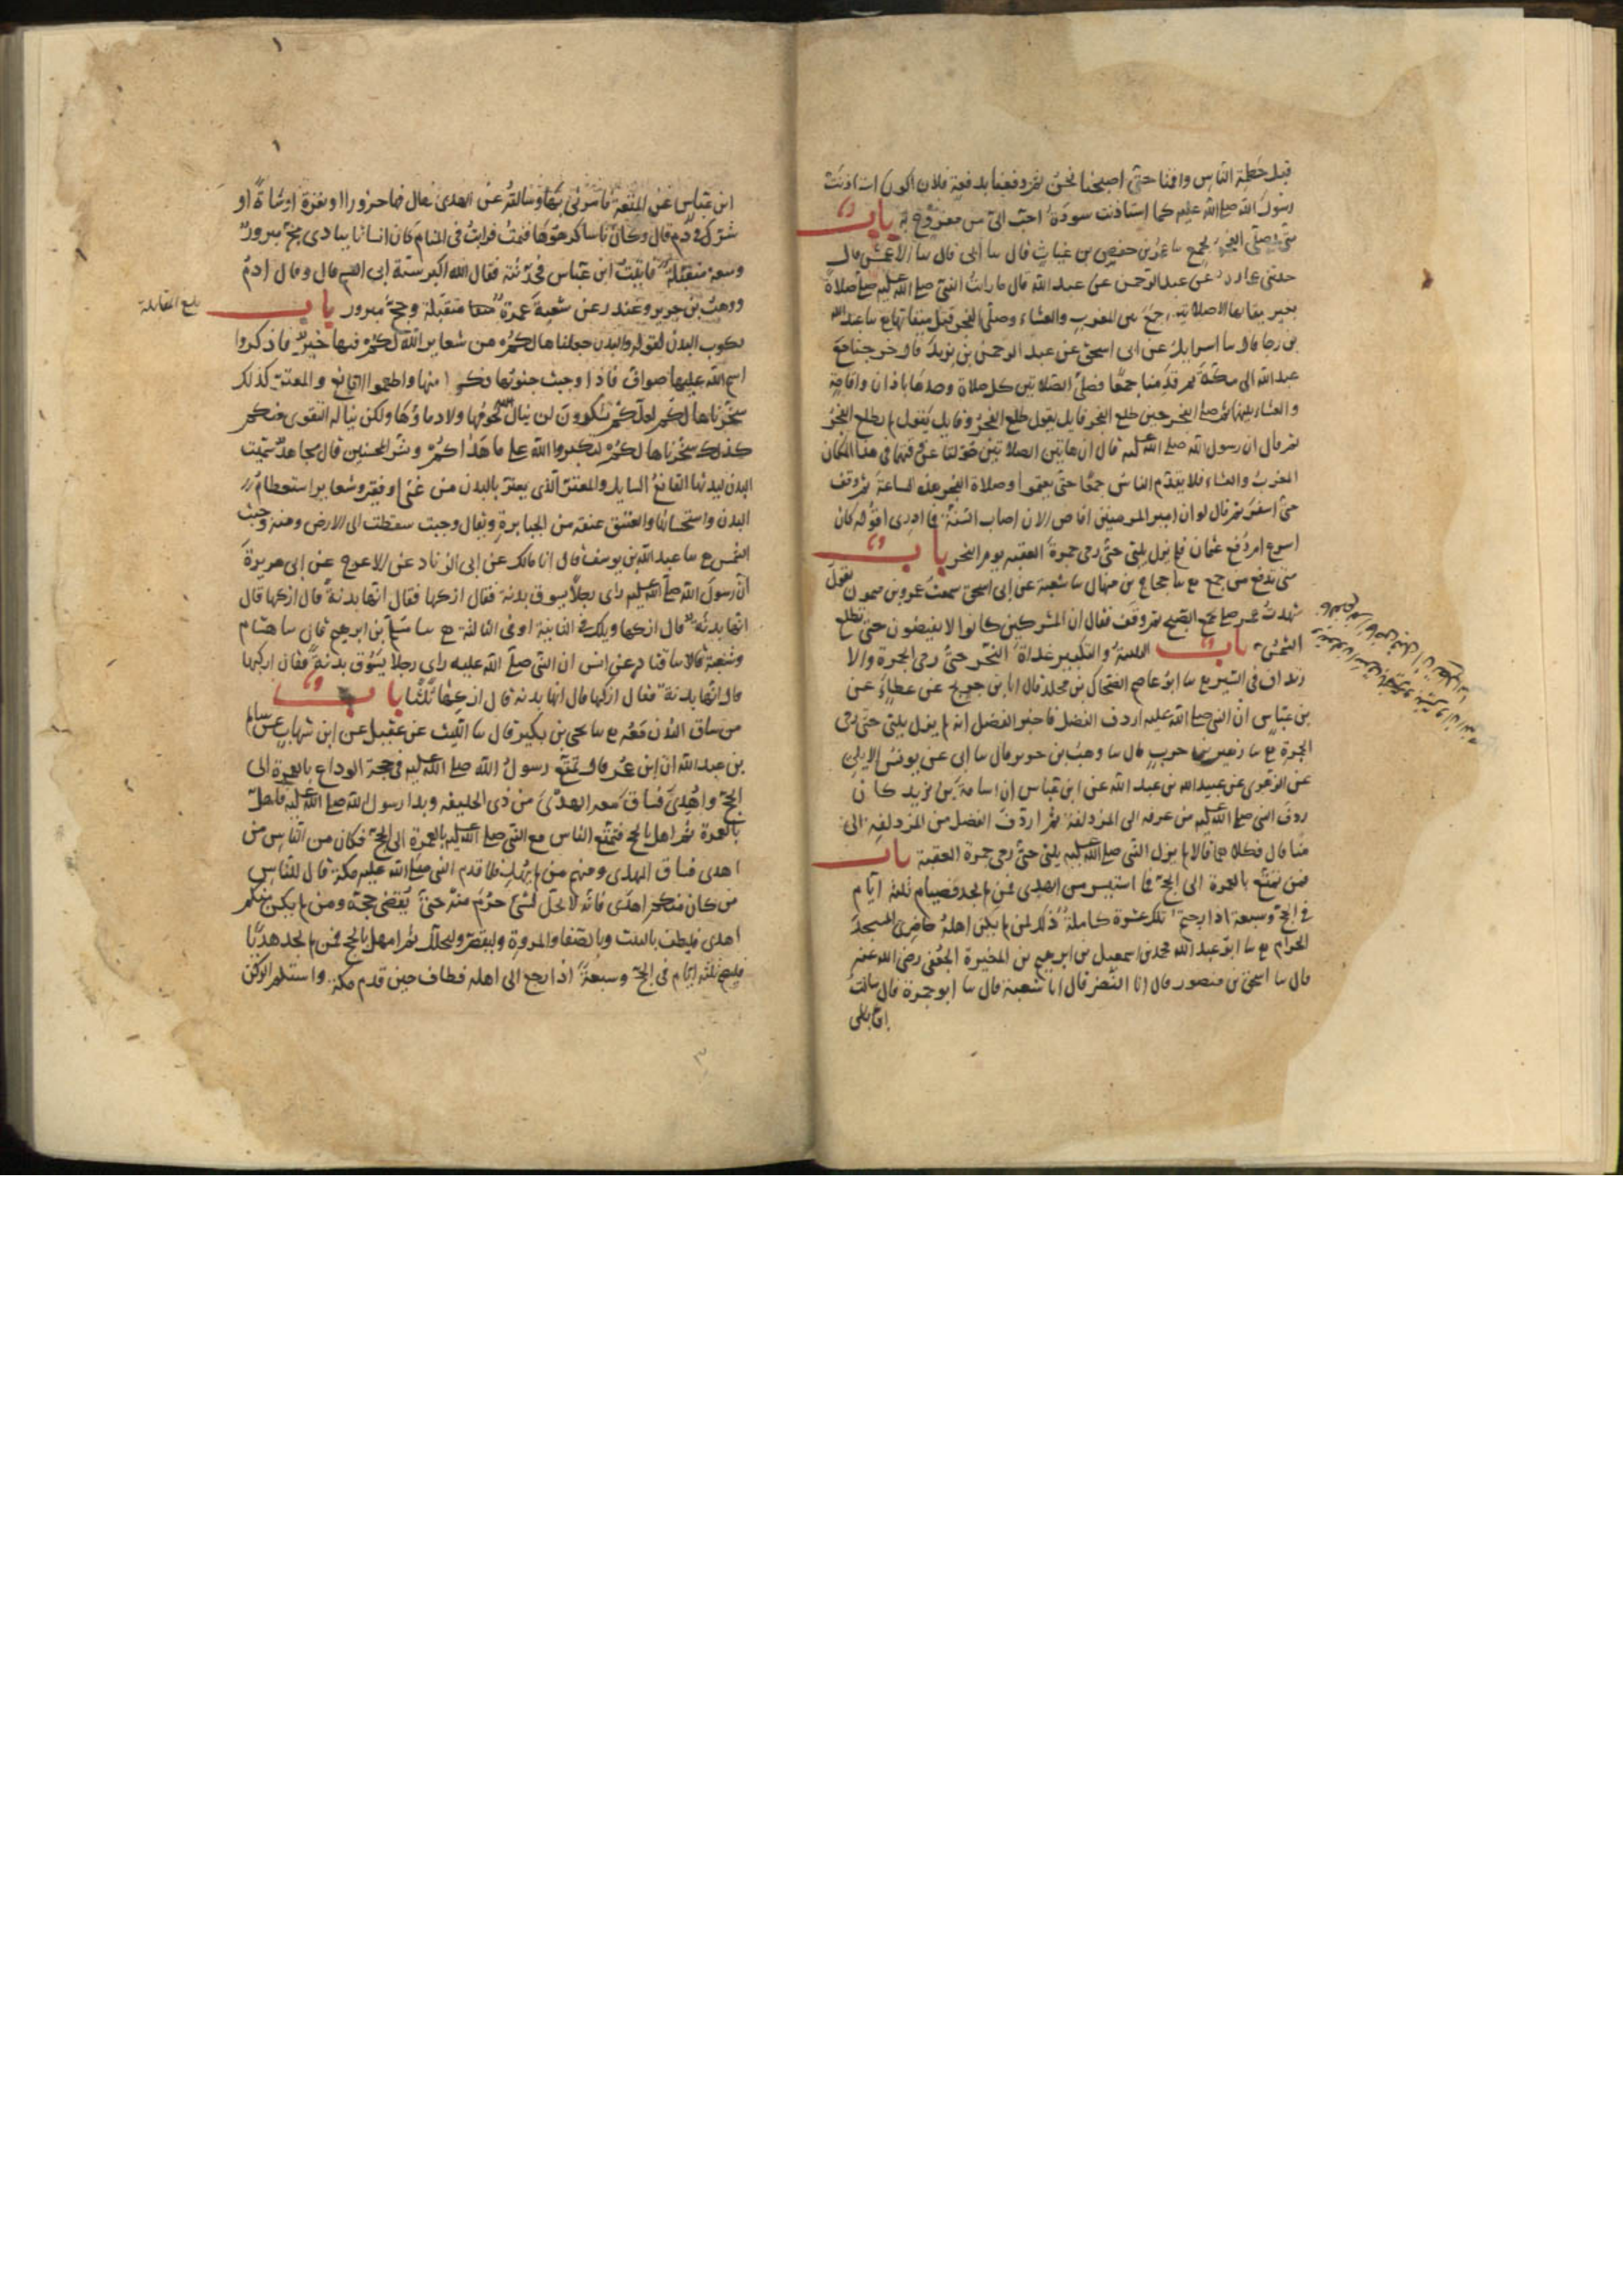 قبل حطمة الناس واقمنا حتى اصبحنا نحن ثم دفعنا بدفعه فلان اكون استاذنت
رسول الله صلى الله عليه كما استاذنت سودة احب الي من مفروح به باب
متى يصلي الفجر بجمع عمر بن حفص بن غياث قال سا أبي قال سا الاعمش قال
حدثني عمارة عن عبد الرحمن عن عبد الله قال ما رايت النبي صلى الله عليه صلى صلاة
بغير ميقاتها الا صلاتين جمع بين المغرب والعشاء وصلى الفجر قبل ميقاتها ع سا عبد الله
بن رجا قال سا اسرايل عن ابي اسحق عن عبد الرحمن بن يزيد قال خرجنا مع
عبد الله الى مكة ثم قدمنا جمعا فصلى الصلاتين كل صلاة وحدها باذان واقامة
والعشاء بينهما ثم صلى الفجر حين طلع الفجر قايل يقول طلع الفجر وقايل يقول لم يطلع الفجر
ثم قال ان رسول الله صلى الله عليه قال ان هاتين الصلاتين حولتا عن وقتهما في هذا المكان
المغرب والعشاء فلا يقدم الناس جمعا حتى يعتموا وصلاة الفجر هذه الساعة ثم وقف
حتى اسفر ثم قال لو ان امير المومنين افاض الان اصاب السنة فما ادري اقوله كان
اسرع ام دفع عثمان فلم يزل يلبي حتى رمى جمرة العقبه يوم النحر باب
متى تدفع من جمع ع سا حجاج بن منهال سا شعبة عن ابي اسحق سمعت عمرو بن ميمون يقول
شهدت عمر صلى بجمع الصبح ثم وقف فقال ان المشركين كانوا لا يفيضون حتى تطلع
الشمس باب التلبية والتكبير غداة النحر حتى رمى الجمرة والا
رتداف في السير ع سا ابو عاصم الضحاك بن مخلد قال انا بن جريج عن عطاء عن
بن عباس ان النبي صلى الله عليه اردف الفضل فاخبر الفضل انه لم يزل يلبي حتى رمى
الجمرة ع سا زهير بن حرب قال سا وهب بن جرير قال سا ابي عن يونس الايلي
عن الزهري عن عبيد الله بن عبد الله عن ابن عباس ان اسامة بن زيد كان
ردف النبي صلى الله عليه من عرفه الى المزدلفة ثم اردف الفضل من المزدلفه الى
منا قال فكلاهما قالا لم يزل النبي صلى الله عليه يلبي حتى رمى جمرة العقبة باب
فمن تمتع بالعمرة الى الحج فما استيسر من الهدى فمن لم يجد فصيام ثلثة ايام
في الحج وسبعة اذا رجعتم تلك عشرة كاملة ذلك لمن لم يكن اهله حاضري المسجد
الحرام ع سا ابو عبد الله محمد بن اسمعيل بن ابرهيم بن المغيرة الجعفي رضي الله عنه
قال سا اسحق بن منصور قال انا النضر قال انا شعبة قال سا ابو جمرة قال سالت
ابن عباس عن المتعة فامرني بها وسالته عن الهدى فقال فيها جزورا او بقرة او شاة او
شرك في دم قال وكان ناسا كرهوها فنمت فرايت في المنام كان انسانا ينادي حج مبرور
ومتعة متقبلة فاتيت ابن عباس فحدثته فقال الله اكبر سنة ابي القسم قال وقال ادم
ووهب بن جرير وغندر عن شعبة عمرة متقبلة وحج مبرور باب
بلغ المقابلة
ركوب البدن لقوله والبدن جعلناها لكم من شعاير الله لكم فيها خير فاذكروا
اسم الله عليها صواف فاذا وجبت جنوبها فكلوا منها واطعموا القانع والمعتر كذلك
سخرناها لكم لعلكم تشكرون لن ينال الله لحومها ولا دماؤها ولكن يناله التقوى منكم
كذلك سخرها لكم لتكبروا الله على ما هداكم وبشر المحسنين قال مجاهد سميت
البدن لبدنها القانع السايل والمعتر الذي يعتر بالبدن من غني او فقير وشعاير استعظام
البدن واستحسانها والعتيق عتقه من الجبابرة ويقال وجبت سقطت الى الارض ومنه وجبت
الشمس ع سا عبد الله بن يوسف قال انا مالك عن ابي الزناد عن الاعرج عن ابي هريرة
ان رسول الله صلى الله عليه راى رجلا يسوق بدنة فقال اركبها فقال انها بدنة قال اركبها قال
انها بدنة قال اركبها ويلك في الثانية او في الثالثة ع سا مسلم بن ابرهيم قال سا هشام
وشعبة قالا سا قتادة عن انس ان النبي صلى الله عليه راى رجلا يسوق بدنة فقال اركبها
قال انها بدنة فقال اركبها قال انها بدنة قال اركبها ثلثا باب
من ساق البدن معه ع سا يحيى بن بكير قال سا الليث عن عقيل عن ابن شهاب عن سالم
بن عبد الله ان ابن عمر قال تمتع رسول الله صلى الله عليه في حجة الوداع بالعمرة الى
الحج واهدى فساق معه الهدى من ذي الحليفه وبدا رسول الله صلى الله عليه فاهل
بالعمرة ثم اهل بالحج فتمتع الناس مع النبي صلى الله عليه بالعمرة الى الحج فكان من الناس من
اهدى فساق الهدى ومنهم من لم يهد فلما قدم النبي صلى الله عليه مكة قال للناس
من كان منكم اهدى فانه لا يحل لشي حرم منه حتى يقضي حجه ومن لم يكن منكم
اهدى فليطف بالبيت وبالصفا والمروة وليقصر وليحلل ثم ليهل بالحج فمن لم يجد هديا
فليصم ثلثة ايام في الحج وسبعة اذا رجع الى اهله فطاف حين قدم مكة واستلم الركن